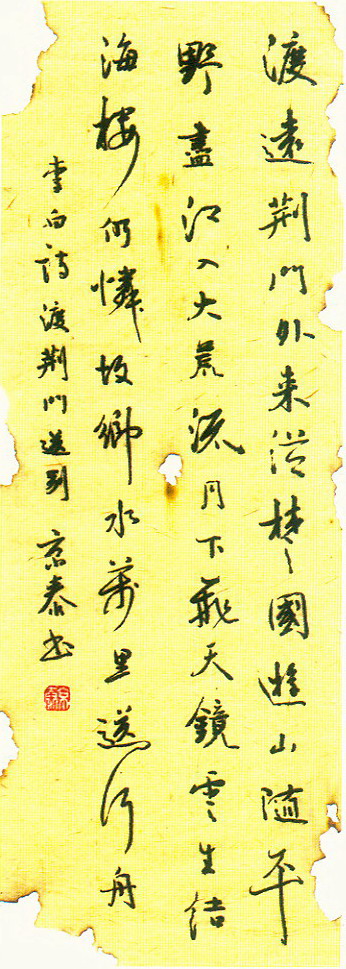 渡遠荆門外来從楚國遊山隨平
野盡江入大荒流月下飛天鏡雲生結
海樓仍憐故鄉水萬里送行舟
李白詩渡荆門送别 京泰书